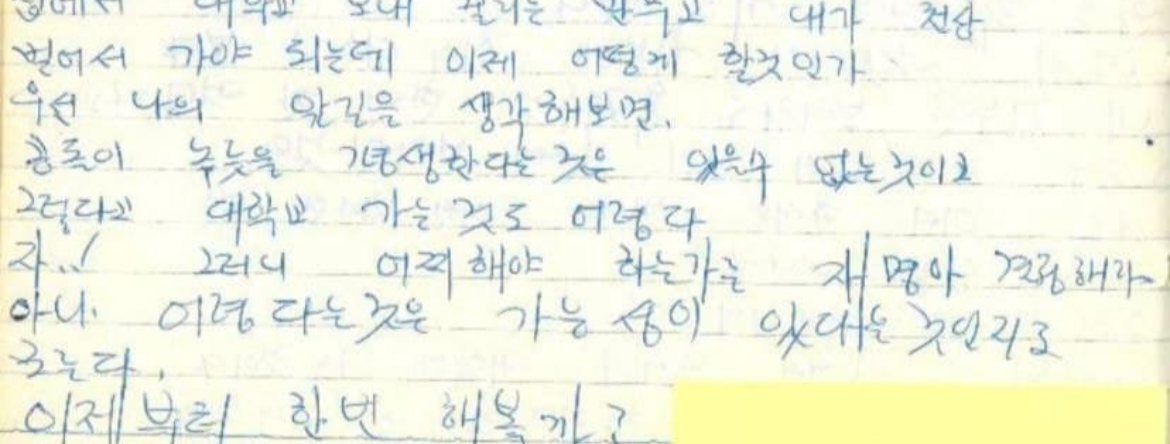 집에서 대학교 보내 줄리는 만무고 내가 천상
벌어서 가야 되는데 이제 어떻게 할것인가
우선 나의 앞길을 생각해보면.
공돌이 누릇을 평생한다는 것은 있을수 없는것이고
그렇다고 대학교 가는것도 어렵다
자..! 그러니 어찌해야 하는가는 재명아 결정해라
아니. 어렵다는것은 가능성이 있다는 것인지도
모른다.
이제부터 한번 해볼까?